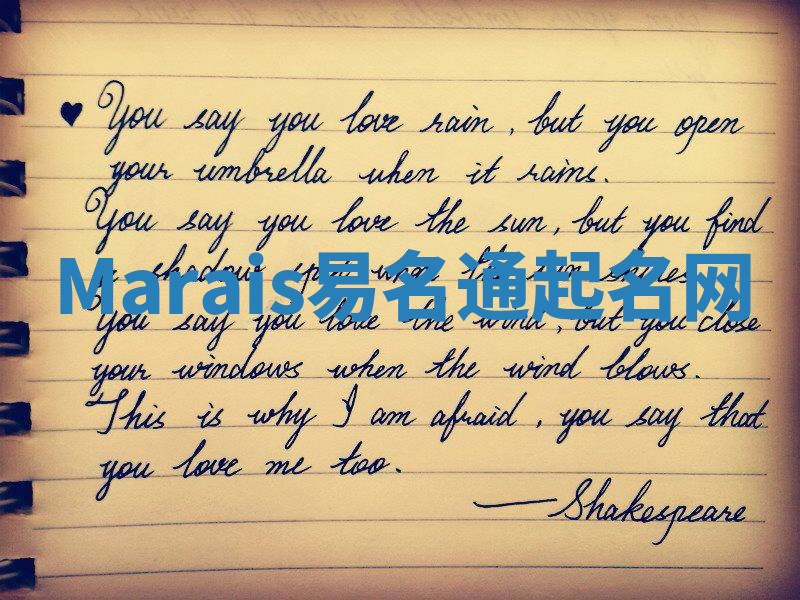 ♥ You say you love rain, but you open
your umbrella when it rains.
You say you love the sun, but you find
a shadow spot when the sun shines.
Marais易名通起名网
You say you love the wind, but you close
your windows when the wind blows.
This is why I am afraid, you say that
you love me too.
— Shakespeare